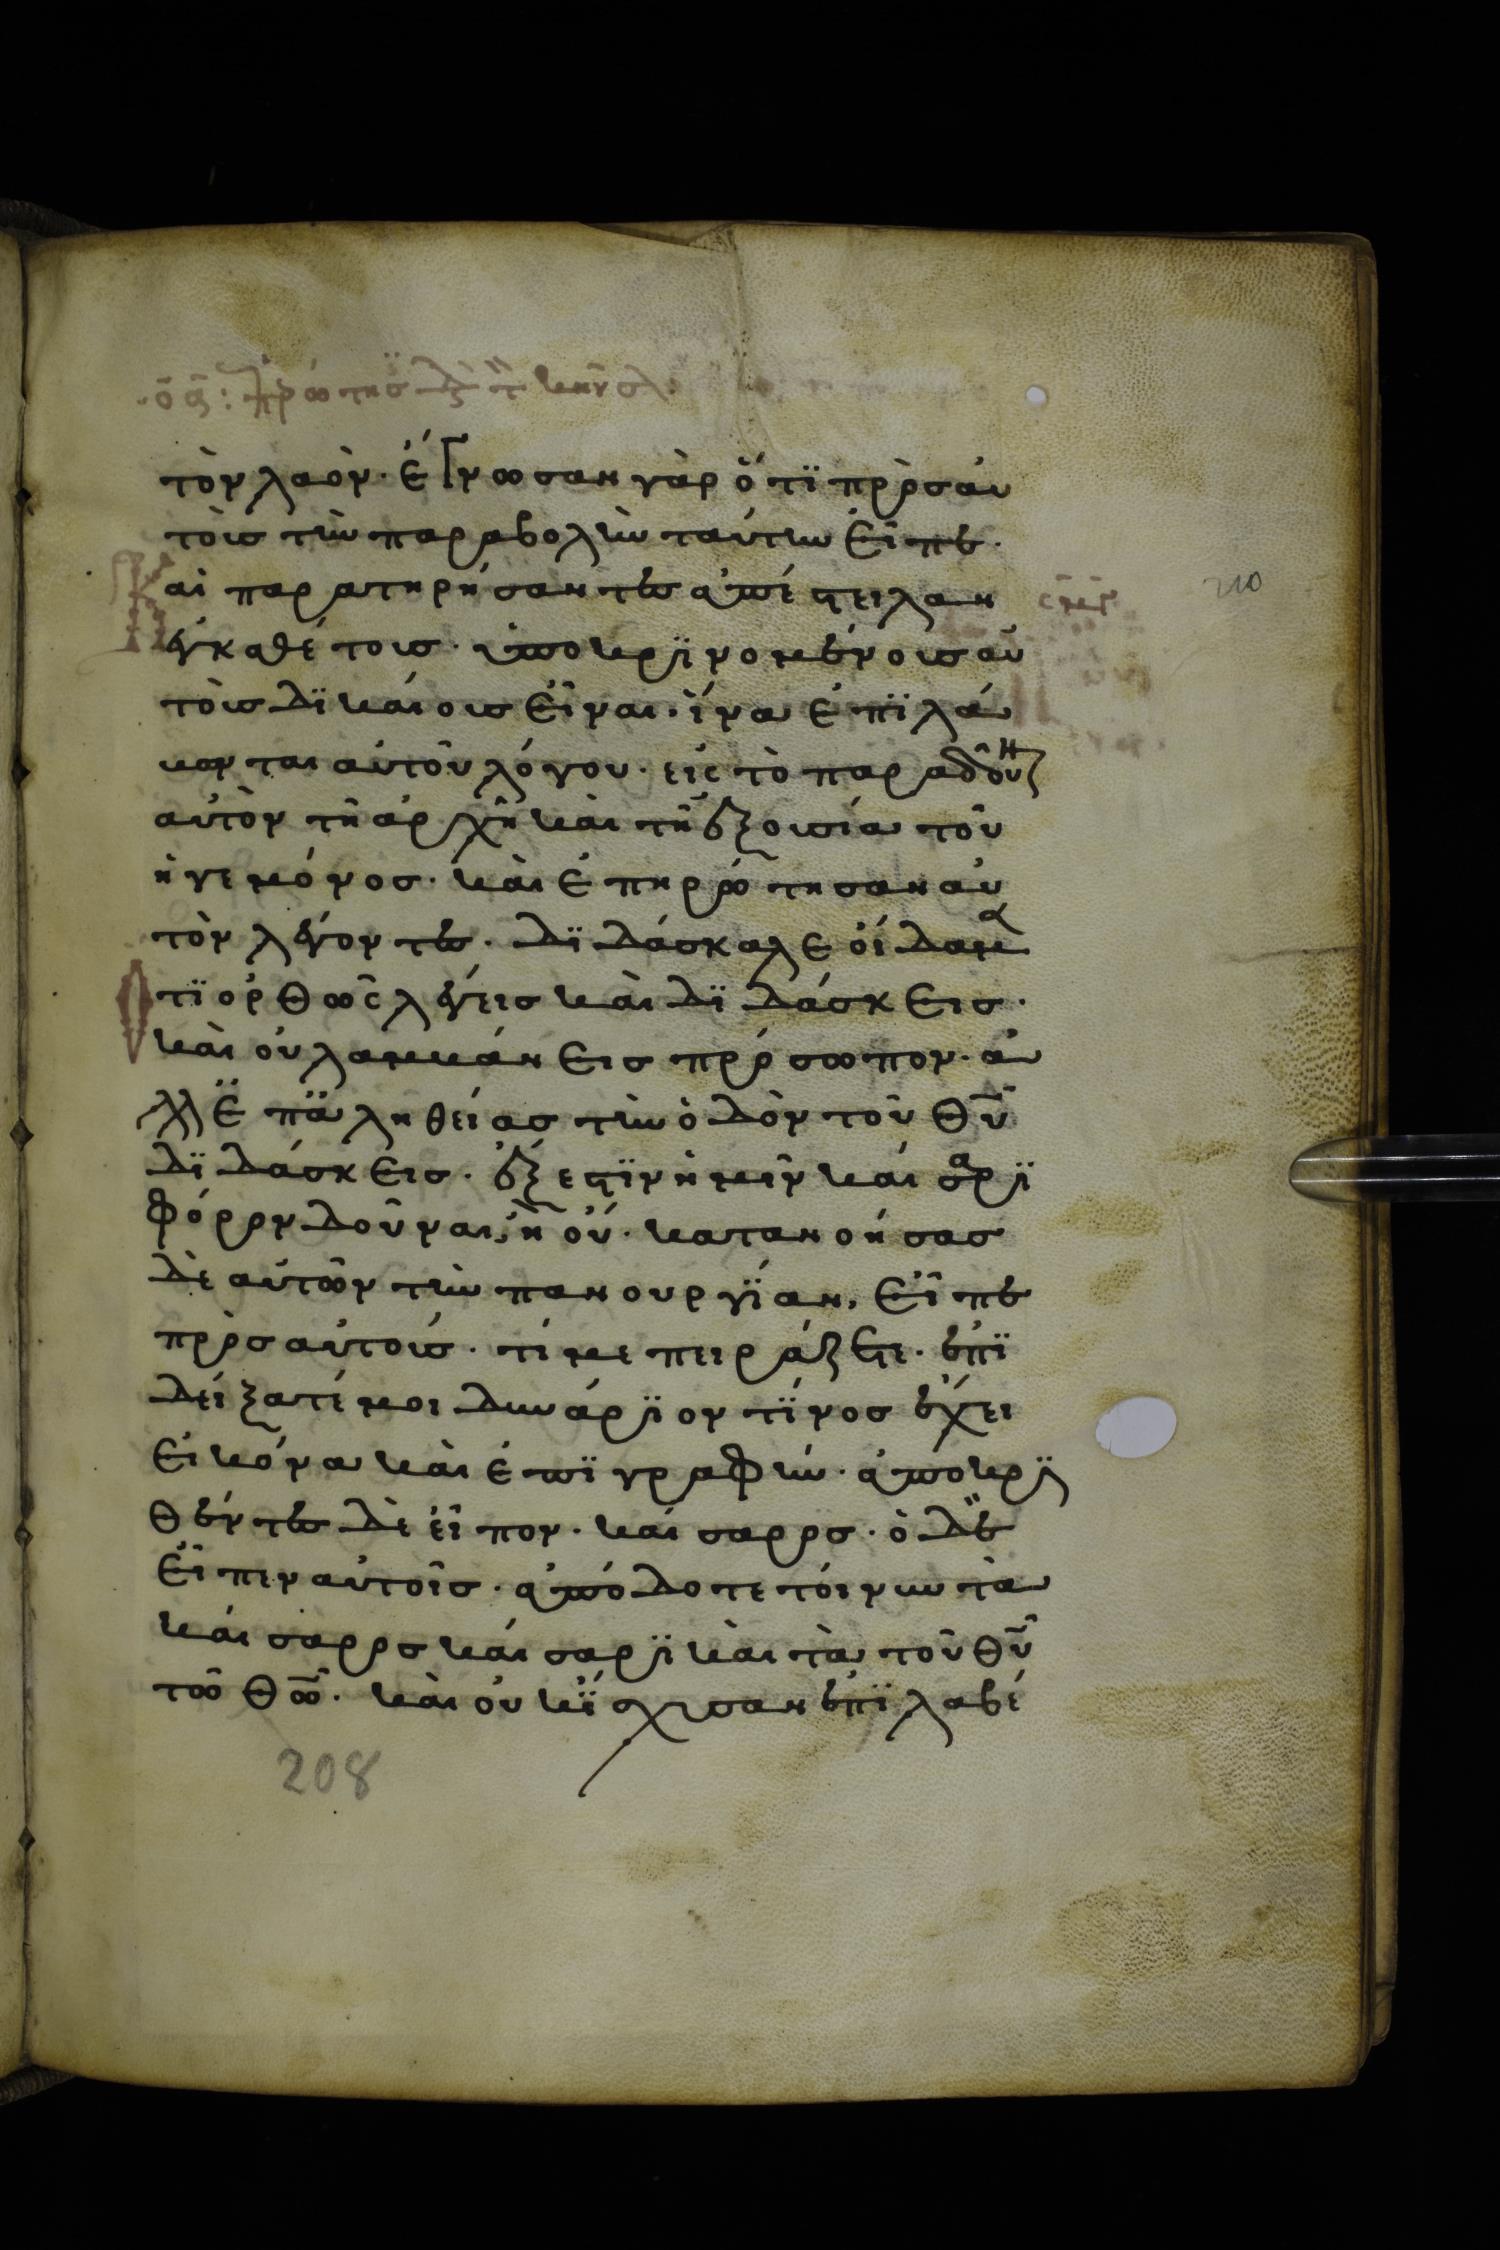 τὸν λαόν· ἔγνωσαν γὰρ ὅτϊ πρὸς αὐ
τοὺς τὴν παραβολὴν ταύτην εἶπε·
Καὶ παρατηρήσαντες ἀπέστειλαν
ἐγκαθέτους· ὑποκρϊνομένους αὐ
τοὺς δϊκαίους εἶναι· ἵνα ἐπϊλά
βωνται αὐτοῦ λόγου· εἰς τὸ παραδοῦν
αὐτὸν τῆ ἀρχῆ καὶ τῆ ἐξουσία τοῦ
ἡγεμόνος· καὶ ἐπηρώτησαν αὐ
τὸν λέγοντες· δϊδάσκαλε οἴδαμ
ὅτϊ ὀρθῶς λέγεις καὶ δϊδάσκεις·
καὶ οὐ λαμβάνεις πρόσωπον· ἀ
λλ ἐπ ἀληθείας τὴν ὁδὸν τοῦ θυ
δϊδάσκεις· ἔξεστϊν ἡμῖν καίσαρϊ
φόρον δοῦναι, ἢ οὔ· κατανοήσας
δὲ αὐτῶν τὴν πανουργΐαν, εἶπε
πρὸς αὐτούς· τί με πειράζετε· ἐπϊ
δείξατέ μοι δηνάρϊον τΐνος ἔχει
εἰκόνα καὶ ἐπϊγραφήν· ἀποκρϊ
θέντες δὲ εἶπον· καίσαρος· ὁ δὲ
εἶπεν αὐτοῖς· ἀπόδοτε τοίνυν τὰ
καίσαρος καίσαρϊ καὶ τὰ τοῦ θυ
τῶ θω· καὶ οὐκ ΐσχυσαν ἐπϊλαβέ
208
210